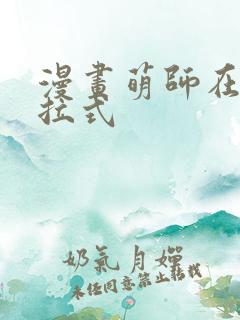 漫畫萌師在
拉式
奶氣月嬋
未经同意禁止转载